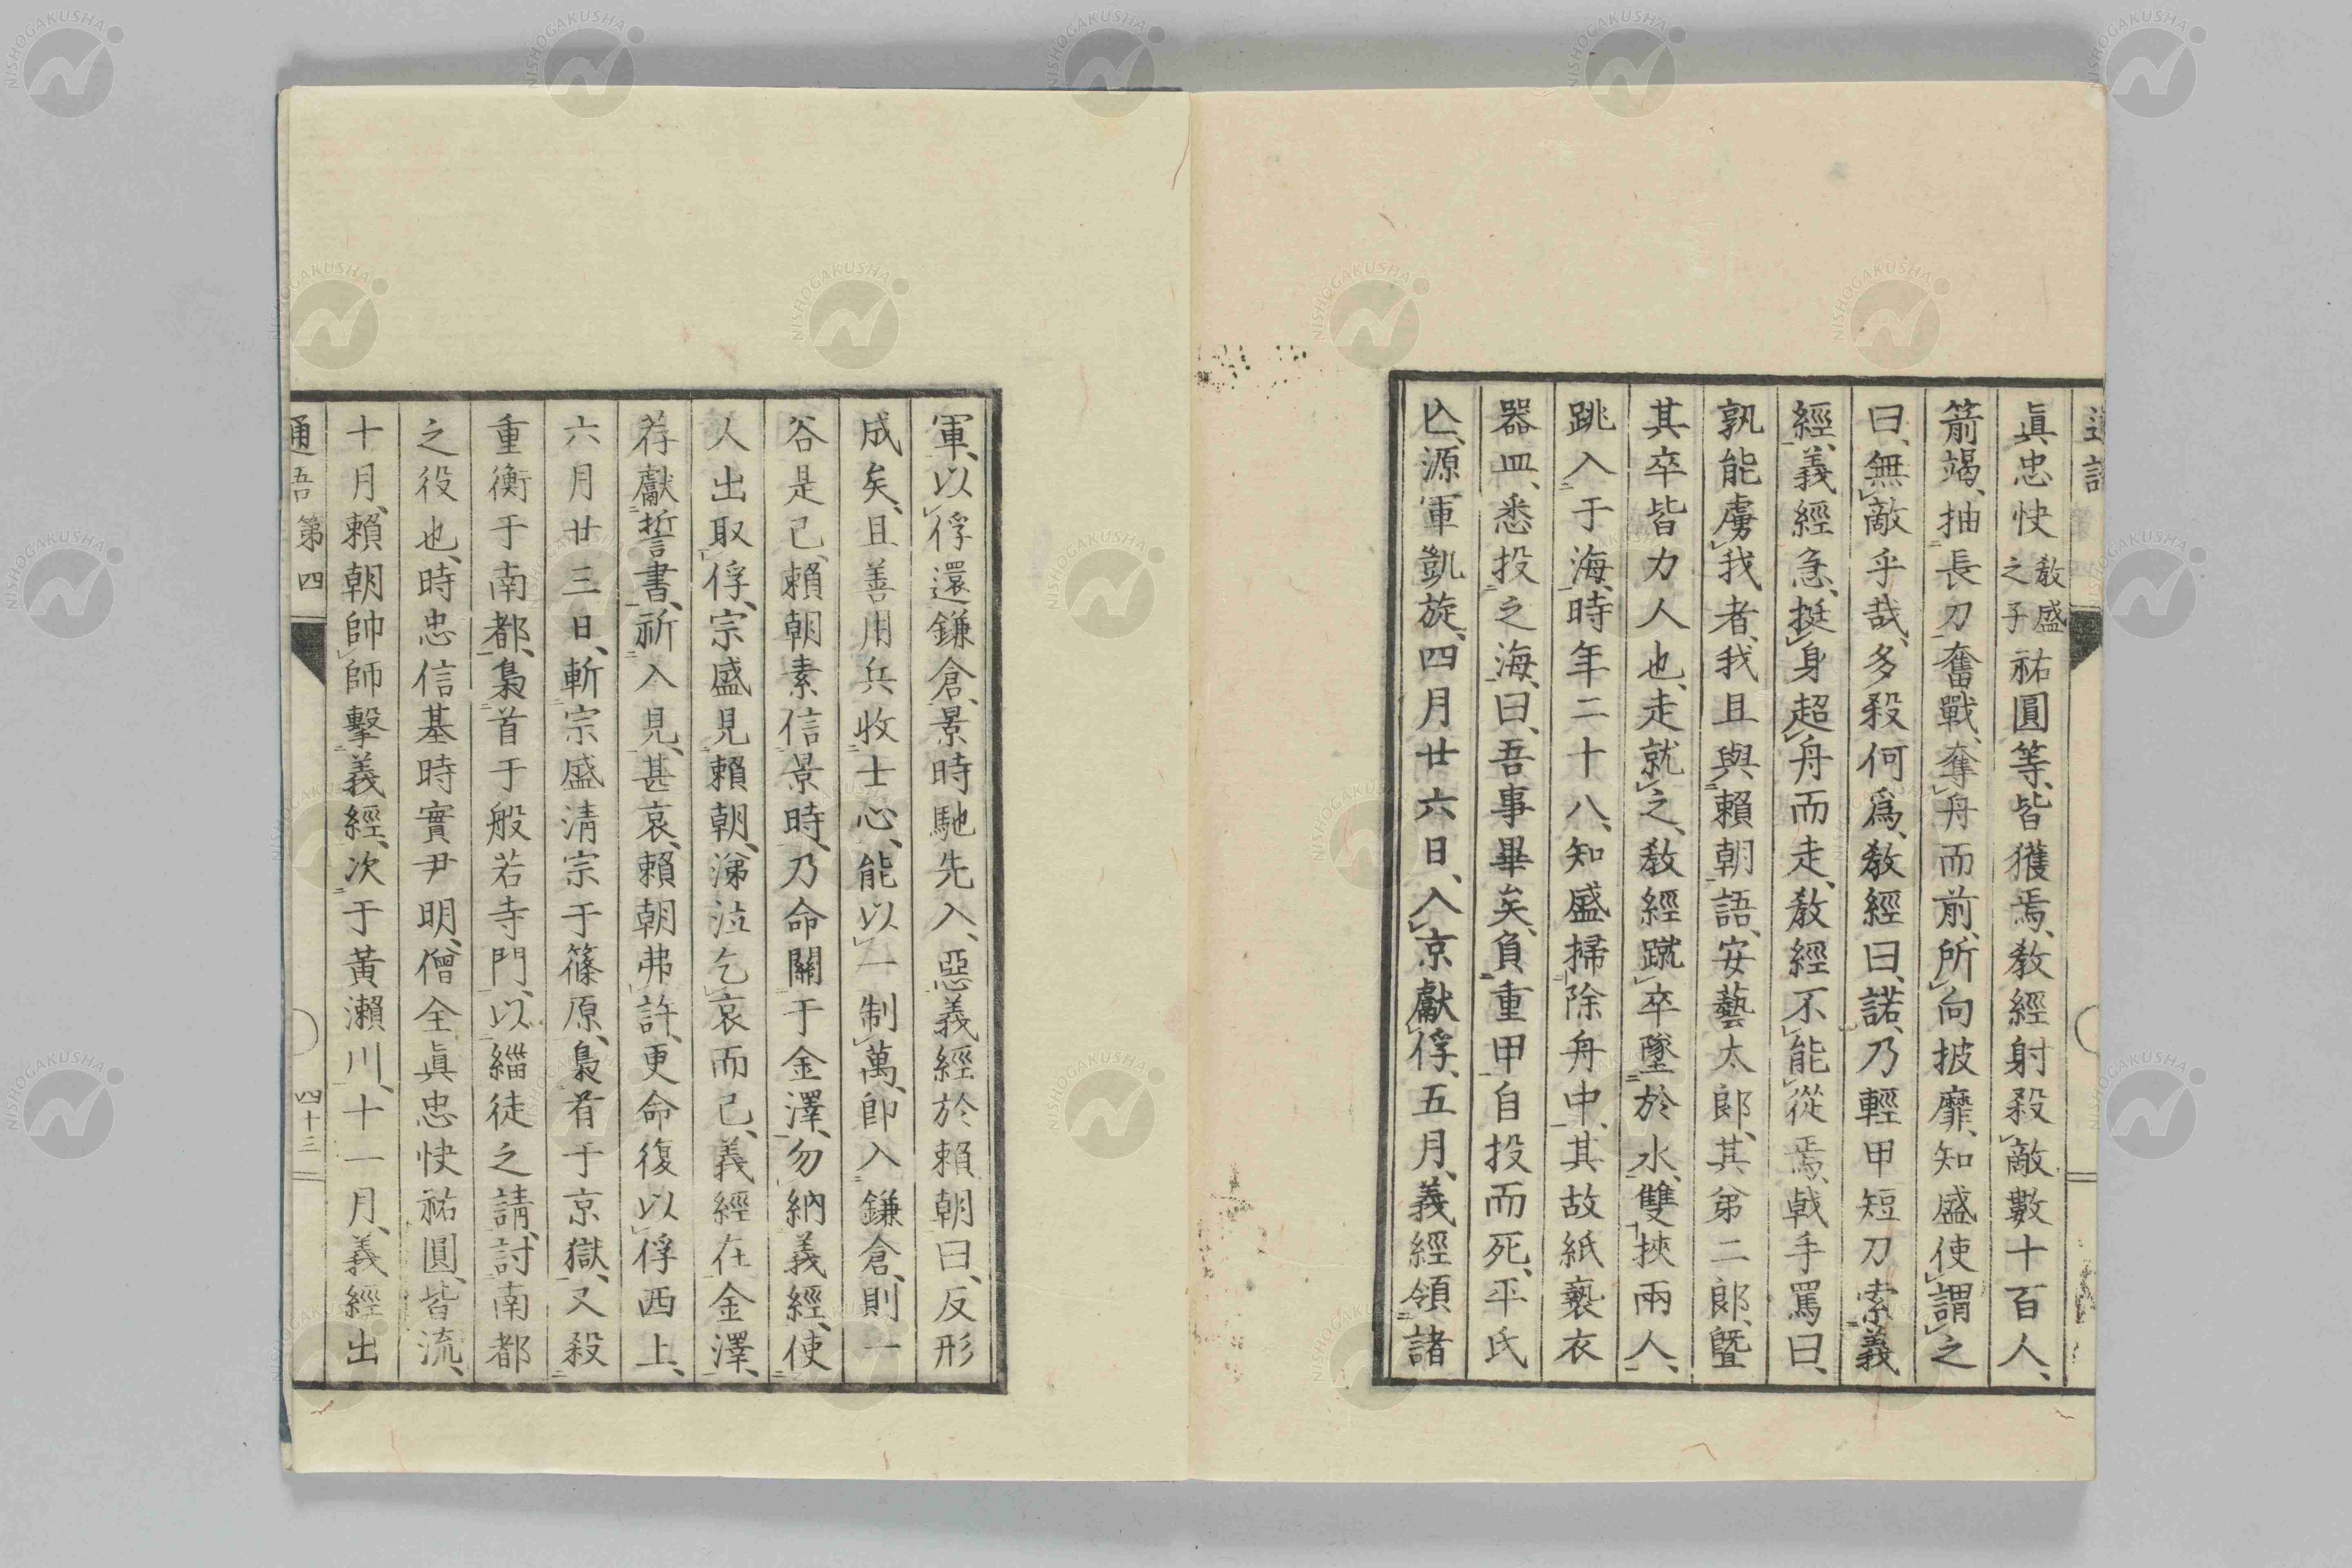 通語
眞忠快敎盛之子祐圓等、皆獲焉、敎經射殺敵數十百人、
箭竭、抽長刀奮戰、奪舟而前、所向披靡、知盛使謂之
曰、無敵乎哉、多殺何爲、敎經曰、諾、乃輕甲短刀索義
經、義經急、挺身超舟而走、敎經不能從焉、戟手罵曰、
孰能虜我者、我且與賴朝語、安藝太郎、其弟二郎、曁
其卒皆力人也、走就之、敎經蹴卒墜於水、雙挾兩人、
跳入于海、時年二十八、知盛掃除舟中、其故紙褻衣
器皿、悉投之海、曰、吾事畢矣、負重甲自投而死、平氏
亾、源軍凱旋、四月廿六日、入京獻俘、五月、義經領諸
軍、以俘還鎌倉、景時馳先入、惡義經於賴朝曰、反形
成矣、且善用兵收士心、能以一制萬、卽入鎌倉、則一
谷是已、賴朝素信景時、乃命關于金澤、勿納義經、使
人出取俘、宗盛見賴朝、涕泣乞哀而已、義經在金澤、
荐獻誓書、祈入見、甚哀、賴朝弗許、更命復以俘西上、
六月廿三日、斬宗盛淸宗于篠原、梟首于京獄、又殺
重衡于南都、梟首于般若寺門、以緇徒之請、討南都
之役也、時忠信基時實尹明、僧全眞忠快祐圓、皆流、
十月、賴朝帥師擊義經、次于黃瀨川、十一月、義經出
通語第四
四十三
NISHOGAKUSHA